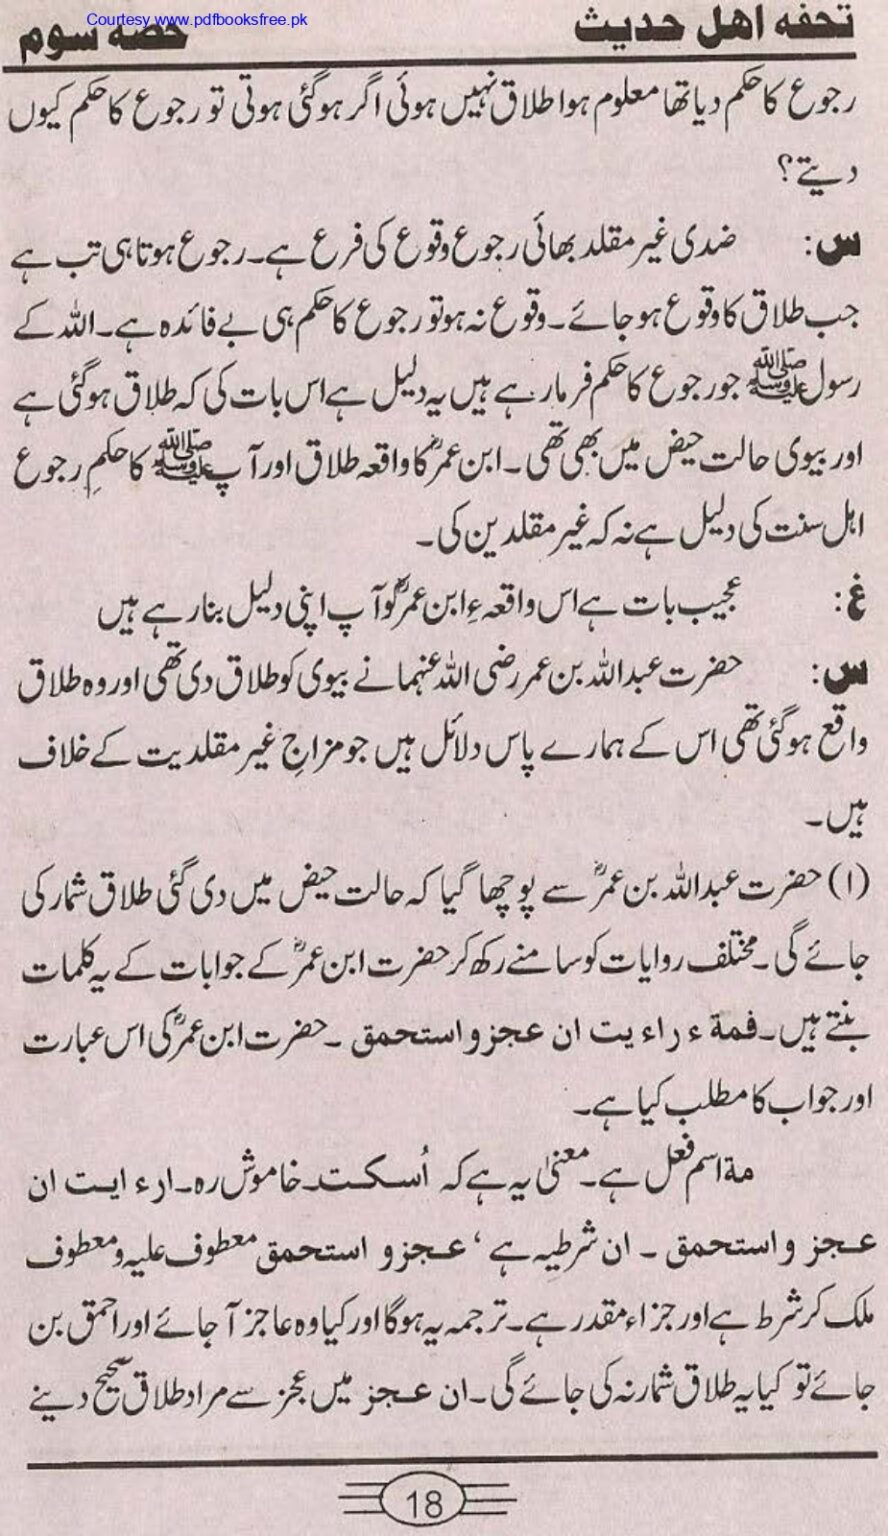 Courtesy www.pdfbooksfree.pk
تحفه اهل حديث حصه سوم
رجوع کا حکم دیا تھا معلوم ہوا طلاق نہیں ہوئی اگر ہوگئی ہوتی تو رجوع کا حکم کیوں
دیتے؟
س: ضدی غیر مقلد بھائی رجوع وقوع کی فرع ہے۔ رجوع ہوتا ہی تب ہے
جب طلاق کا وقوع ہو جائے۔ وقوع نہ ہو تو رجوع کا حکم ہی بے فائدہ ہے۔ اللہ کے
رسول ﷺ جو رجوع کا حکم فرما رہے ہیں یہ دلیل ہے اس بات کی کہ طلاق ہوگئی ہے
اور بیوی حالت حیض میں بھی تھی۔ ابن عمرؓ کا واقعہ طلاق اور آپ ﷺ کا حکمِ رجوع
اہل سنت کی دلیل ہے نہ کہ غیر مقلدین کی۔
غ: عجیب بات ہے اس واقعہءِ ابن عمرؓ کو آپ اپنی دلیل بنا رہے ہیں
س: حضرت عبداللہ بن عمر رضی اللہ عنہما نے بیوی کو طلاق دی تھی اور وہ طلاق
واقع ہوگئی تھی اس کے ہمارے پاس دلائل ہیں جو مزاجِ غیر مقلدیت کے خلاف
ہیں۔
(۱) حضرت عبداللہ بن عمرؓ سے پوچھا گیا کہ حالت حیض میں دی گئی طلاق شمار کی
جائے گی۔ مختلف روایات کو سامنے رکھ کر حضرت ابن عمرؓ کے جوابات کے یہ کلمات
بنتے ہیں۔ فمة ء راء يت ان عجز و استحمق ۔ حضرت ابن عمرؓ کی اس عبارت
اور جواب کا مطلب کیا ہے۔
مة اسم فعل ہے۔ معنیٰ یہ ہے کہ اُسکت۔ خاموش رہ۔ ارء ایت ان
عجز و استحمق ۔ ان شرطیہ ہے ‘ عجز و استحمق معطوف علیہ و معطوف
ملک کر شرط ہے اور جزاء مقدر ہے۔ ترجمہ یہ ہوگا اور کیا وہ عاجز آ جائے اور احمق بن
جائے تو کیا یہ طلاق شمار نہ کی جائے گی۔ ان عجز میں عجز سے مراد طلاق صحیح دینے
18